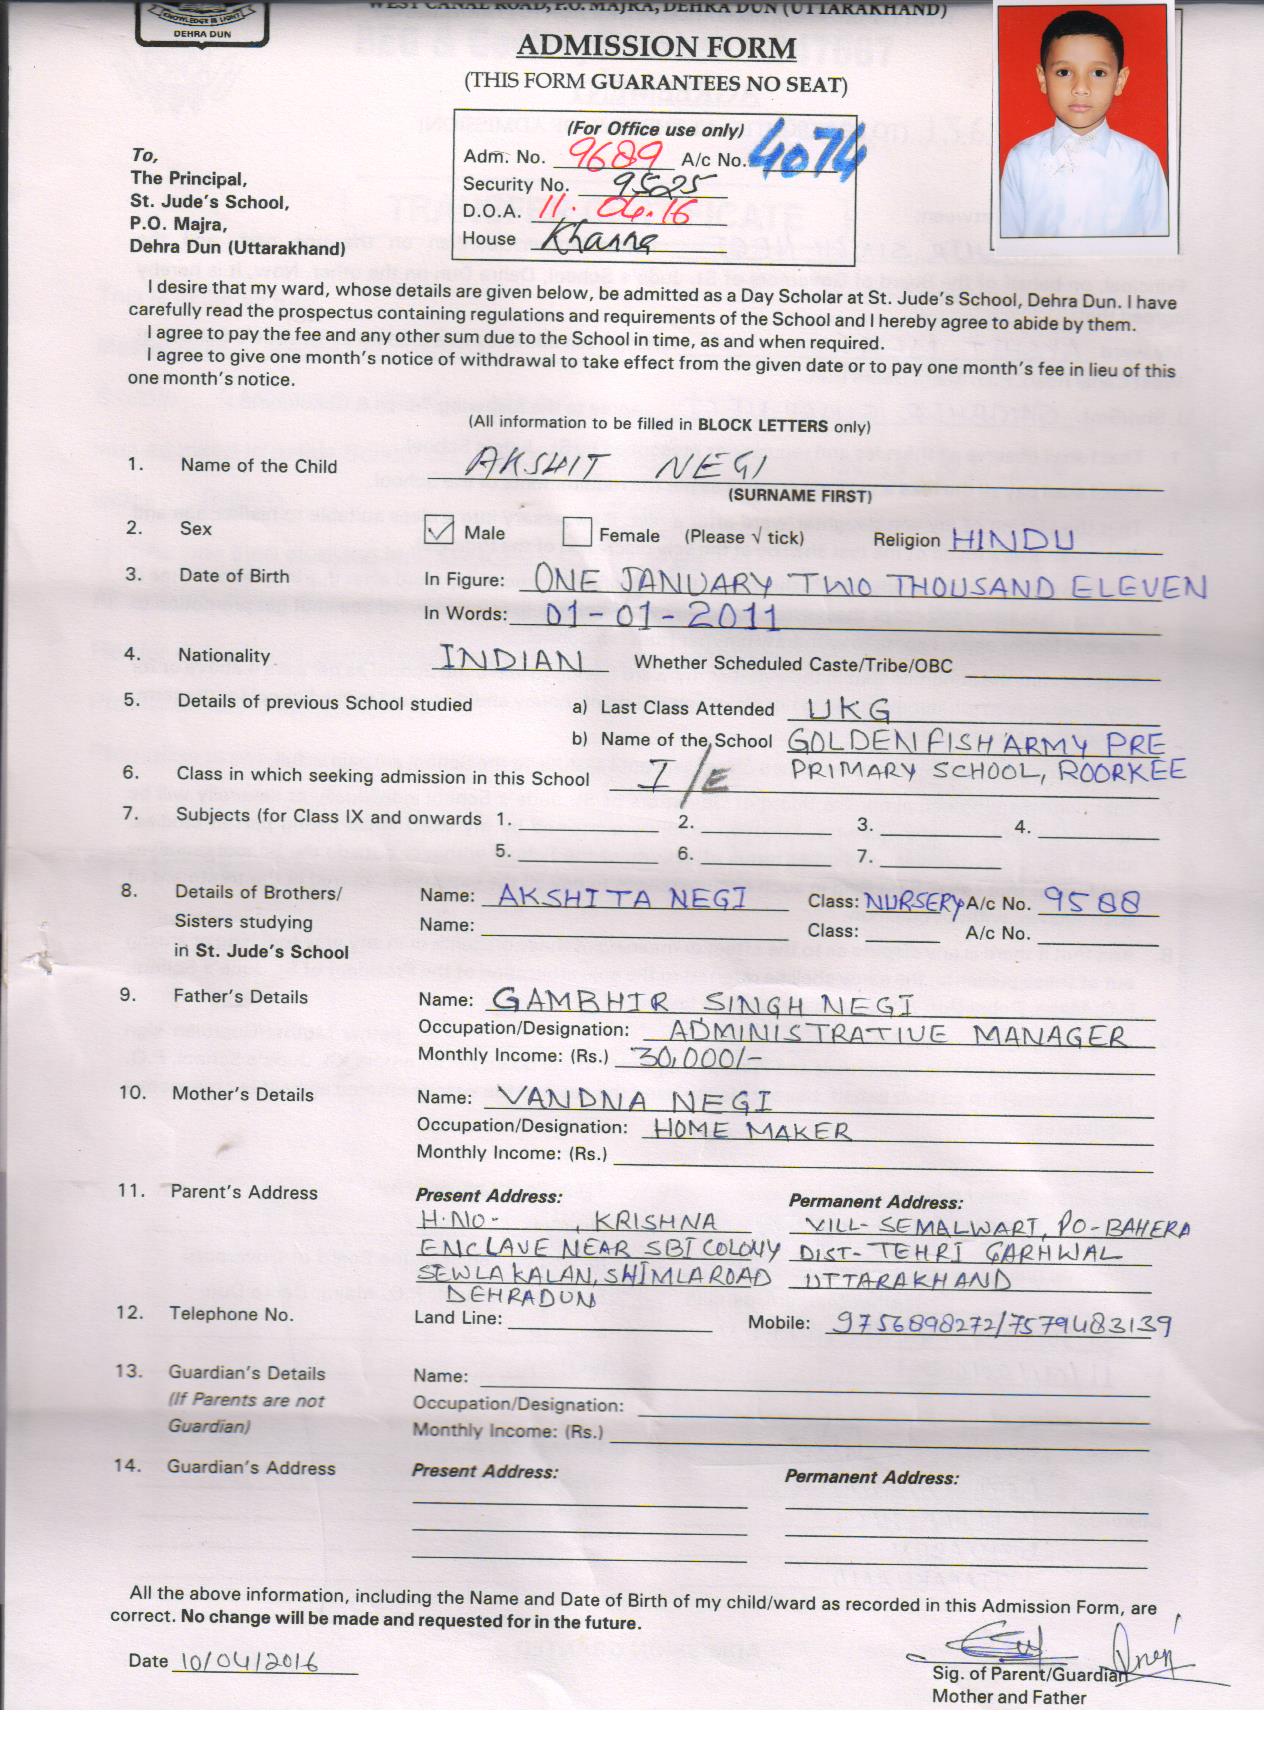 KNOWLEDGE IS LIGHT
DEHRA DUN
WEST CANAL ROAD, P.O. MAJRA, DEHRA DUN (UTTARAKHAND)
ADMISSION FORM
(THIS FORM GUARANTEES NO SEAT)
(For Office use only)
Adm. No. 9689 A/c No. 4074
Security No. 9525
D.O.A. 11.04.16
House Khanna
To,
The Principal,
St. Jude's School,
P.O. Majra,
Dehra Dun (Uttarakhand)
I desire that my ward, whose details are given below, be admitted as a Day Scholar at St. Jude's School, Dehra Dun. I have
carefully read the prospectus containing regulations and requirements of the School and I hereby agree to abide by them.
I agree to pay the fee and any other sum due to the School in time, as and when required.
I agree to give one month's notice of withdrawal to take effect from the given date or to pay one month's fee in lieu of this
one month's notice.
(All information to be filled in BLOCK LETTERS only)
1. Name of the Child AKSHIT NEGI
(SURNAME FIRST)
2. Sex ✓ Male Female (Please √ tick) Religion HINDU
3. Date of Birth In Figure: ONE JANUARY TWO THOUSAND ELEVEN
In Words: 01-01-2011
4. Nationality INDIAN Whether Scheduled Caste/Tribe/OBC
5. Details of previous School studied a) Last Class Attended UKG
b) Name of the School GOLDEN FISH ARMY PRE
PRIMARY SCHOOL, ROORKEE
6. Class in which seeking admission in this School I/E
7. Subjects (for Class IX and onwards 1. 2. 3. 4.
5. 6. 7.
8. Details of Brothers/ Name: AKSHITA NEGI Class: NURSERY A/c No. 9588
Sisters studying Name: Class: A/c No.
in St. Jude's School
9. Father's Details Name: GAMBHIR SINGH NEGI
Occupation/Designation: ADMINISTRATIVE MANAGER
Monthly Income: (Rs.) 30,000/-
10. Mother's Details Name: VANDNA NEGI
Occupation/Designation: HOME MAKER
Monthly Income: (Rs.)
11. Parent's Address Present Address: Permanent Address:
H.NO- , KRISHNA VILL- SEMALWART, PO-BAHERA
ENCLAVE NEAR SBI COLONY DIST- TEHRI GARHWAL
SEWLA KALAN, SHIMLA ROAD UTTARAKHAND
DEHRADUN
12. Telephone No. Land Line: Mobile: 9756898272/7579483139
13. Guardian's Details Name:
(If Parents are not Occupation/Designation:
Guardian) Monthly Income: (Rs.)
14. Guardian's Address Present Address: Permanent Address:
All the above information, including the Name and Date of Birth of my child/ward as recorded in this Admission Form, are
correct. No change will be made and requested for in the future.
Date 10/04/2016
Sig. of Parent/Guardian
Mother and Father